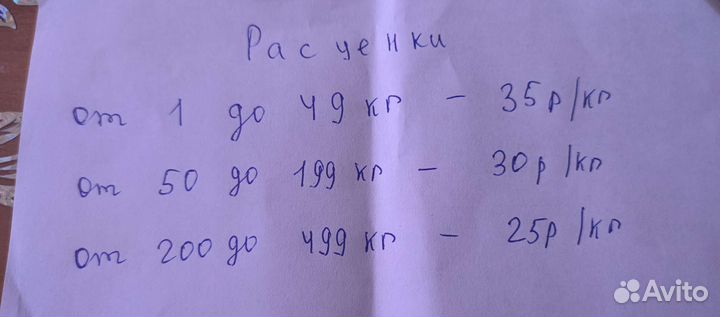 Расценки
от 1 до 49 кг - 35р/кг
от 50 до 199 кг - 30р/кг
от 200 до 499 кг - 25р/кг
Avito